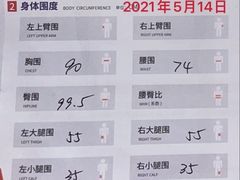 2 身体围度 BODY CIRCUMFERENCE 2021年5月14日
左上臂围 右上臂围
LEFT UPPER ARM RIGHT UPPER ARM
胸围 90 腰围 74
CHEST WAIST
臀围 99.5 腰臀比
HIPLINE WHR
左大腿围 55 右大腿围 55
LEFT THIGH RIGHT THIGH
左小腿围 35 右小腿围 35
LEFT CALF RIGHT CALF